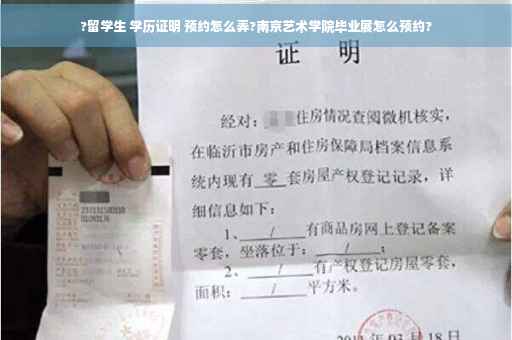 ?留学生 学历证明 预约怎么弄?南京艺术学院毕业展怎么预约?
证 明
经对: 住房情况查阅微机核实,
在临沂市房产和住房保障局档案信息系
统内现有 零 套房屋产权登记记录,详
细信息如下:
1、 / 有商品房网上登记备案
零套,坐落位于: / ;
2、 / 有产权登记房屋零套,
面积: / 平方米。